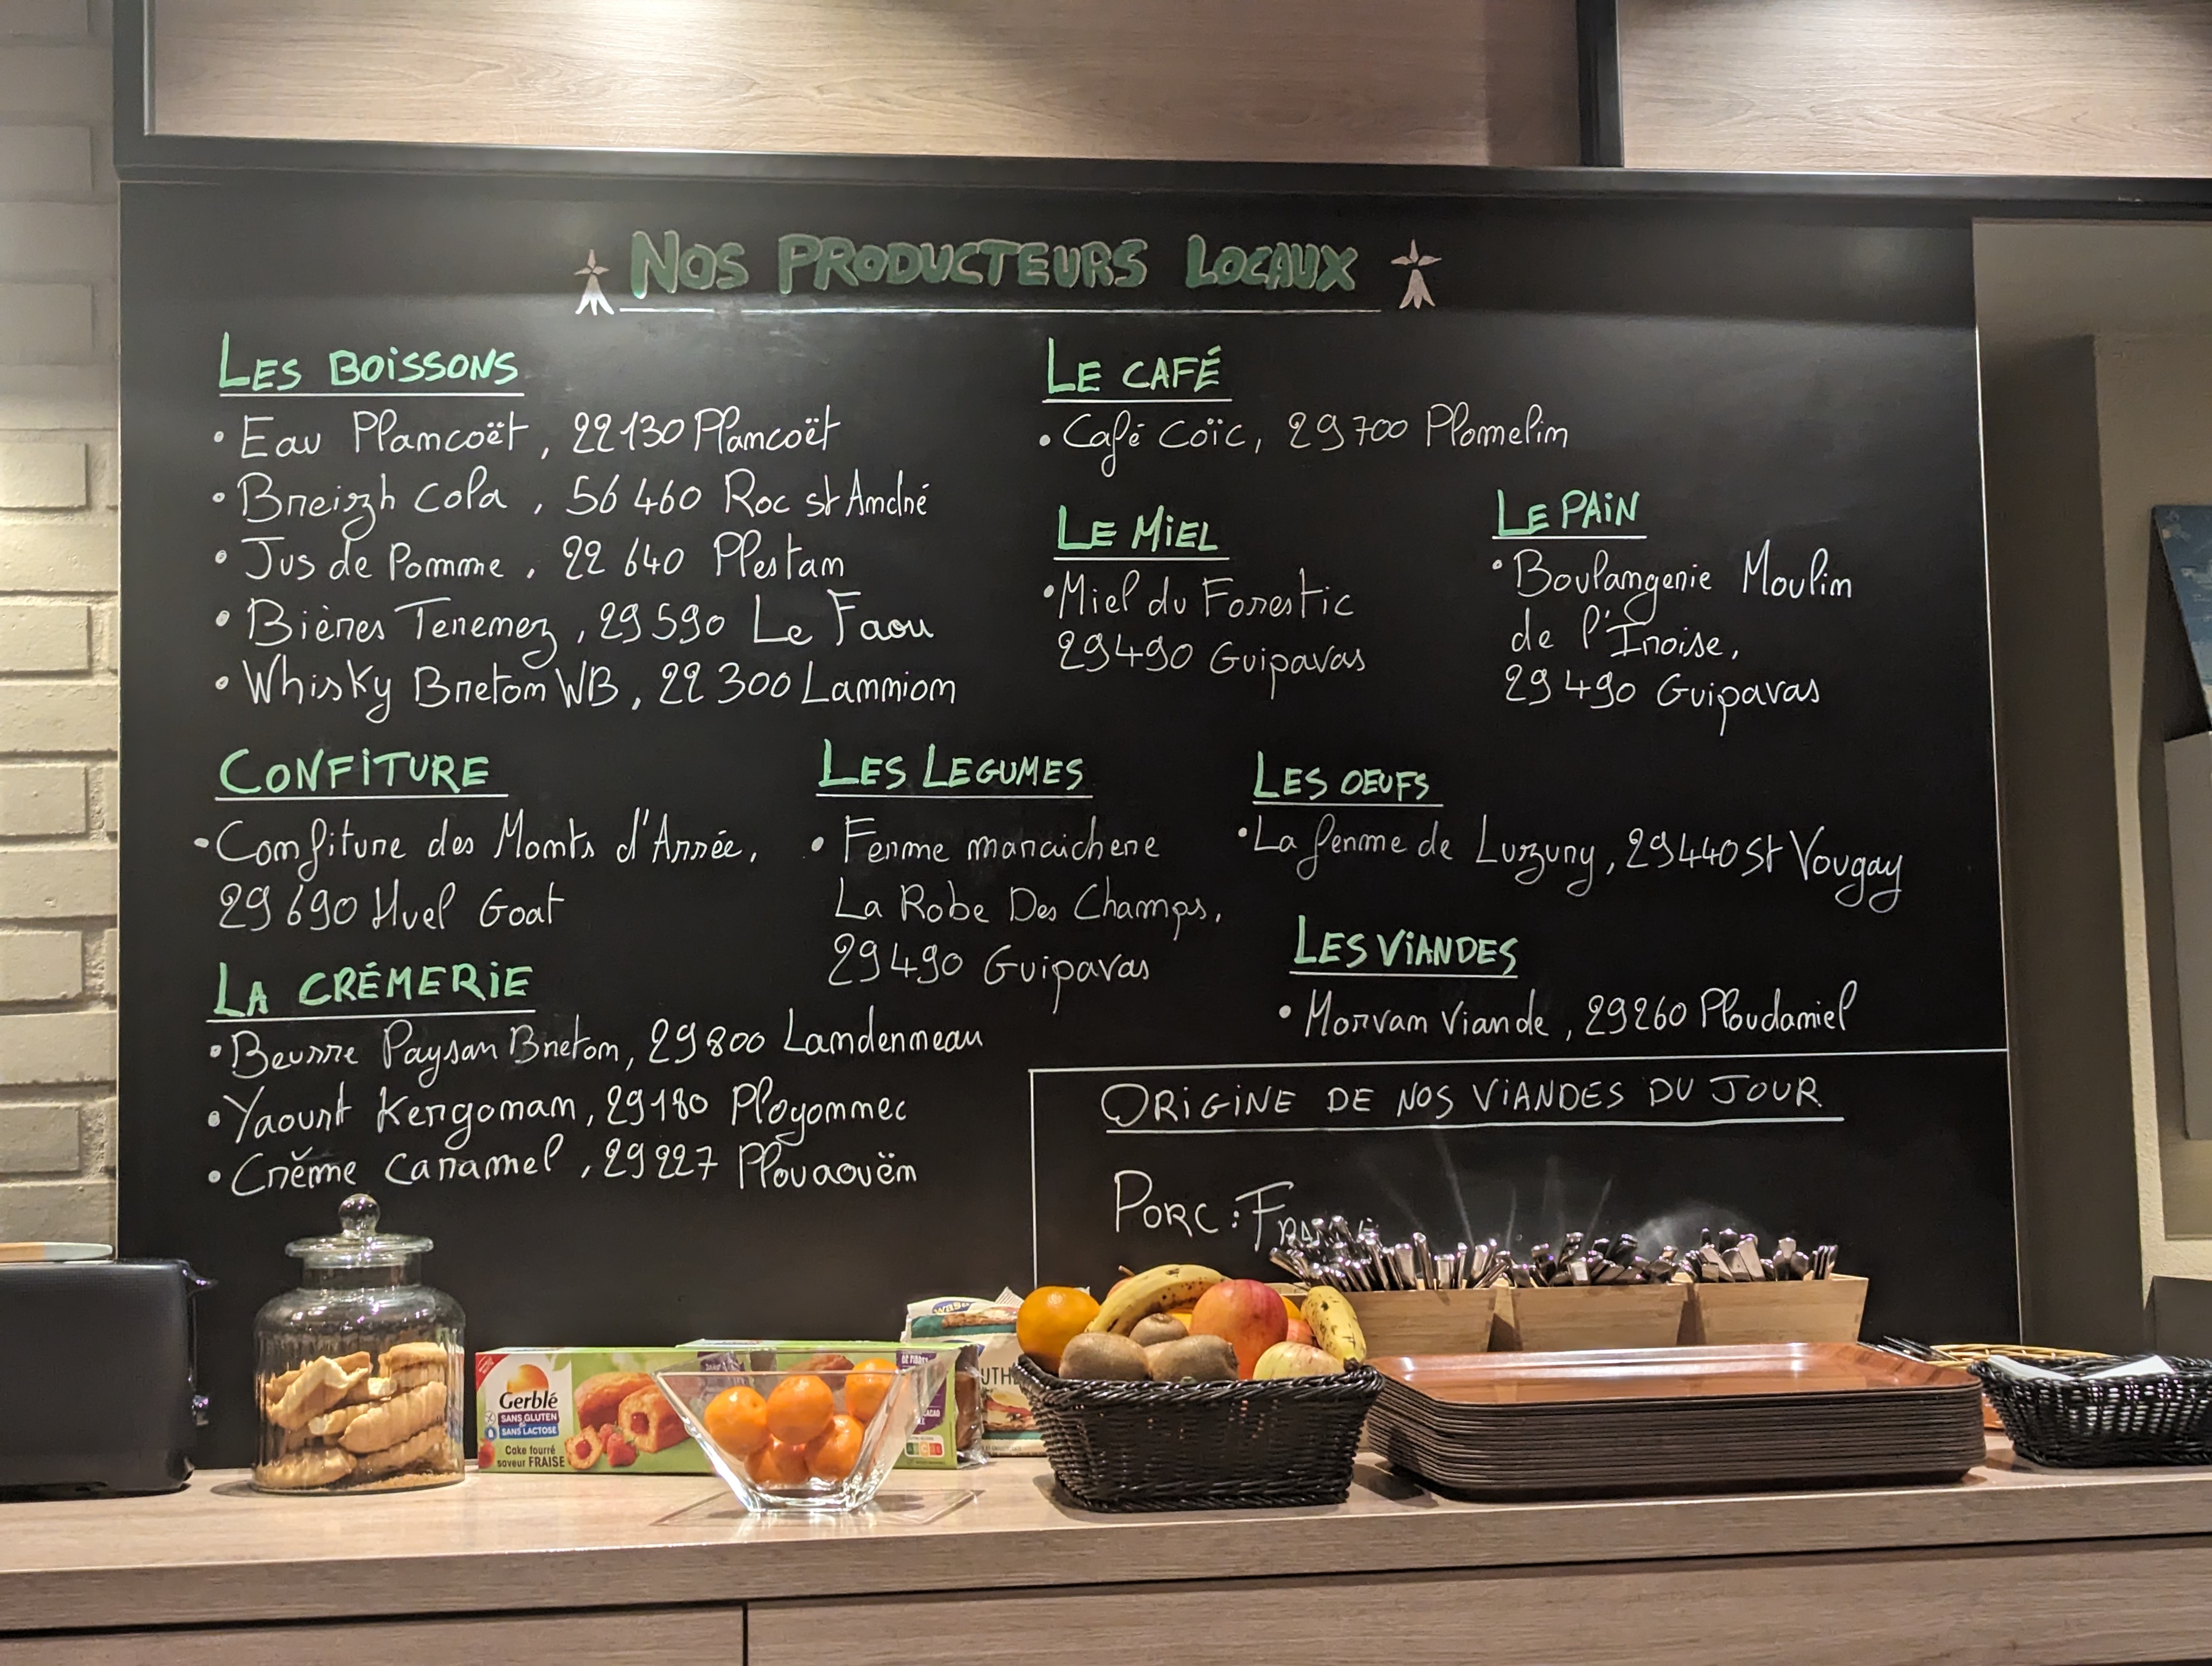 NOS PRODUCTEURS LOCAUX
LES BOISSONS
• Eau Plancoët, 22130 Plancoët
• Breizh Cola, 56 460 Roc st André
• Jus de Pomme, 22 640 Plestan
• Bières Terenez, 29 590 Le Faou
• Whisky Breton WB, 22 300 Lannion
LE CAFÉ
• Café Coïc, 29 700 Plomelin
LE MIEL
• Miel du Forestic
29490 Guipavas
LE PAIN
• Boulangerie Moulin
de l'Inoise,
29 490 Guipavas
CONFITURE
• Confiture des Monts d'Arrée,
29 690 Huel Goat
LES LEGUMES
• Ferme maraichere
La Robe Des Champs,
29490 Guipavas
LES OEUFS
• La ferme de Luzuny, 29440 St Vougay
LES VIANDES
• Morvan Viande, 29260 Ploudaniel
LA CRÉMERIE
• Beurre Paysan Breton, 29 800 Landerneau
• Yaourt Kergoman, 29180 Plogonnec
• Crème Caramel, 29 227 Plouaouën
ORIGINE DE NOS VIANDES DU JOUR
PORC : 
Gerblé
SANS GLUTEN
SANS LACTOSE
Cake fourré
saveur FRAISE
wasa